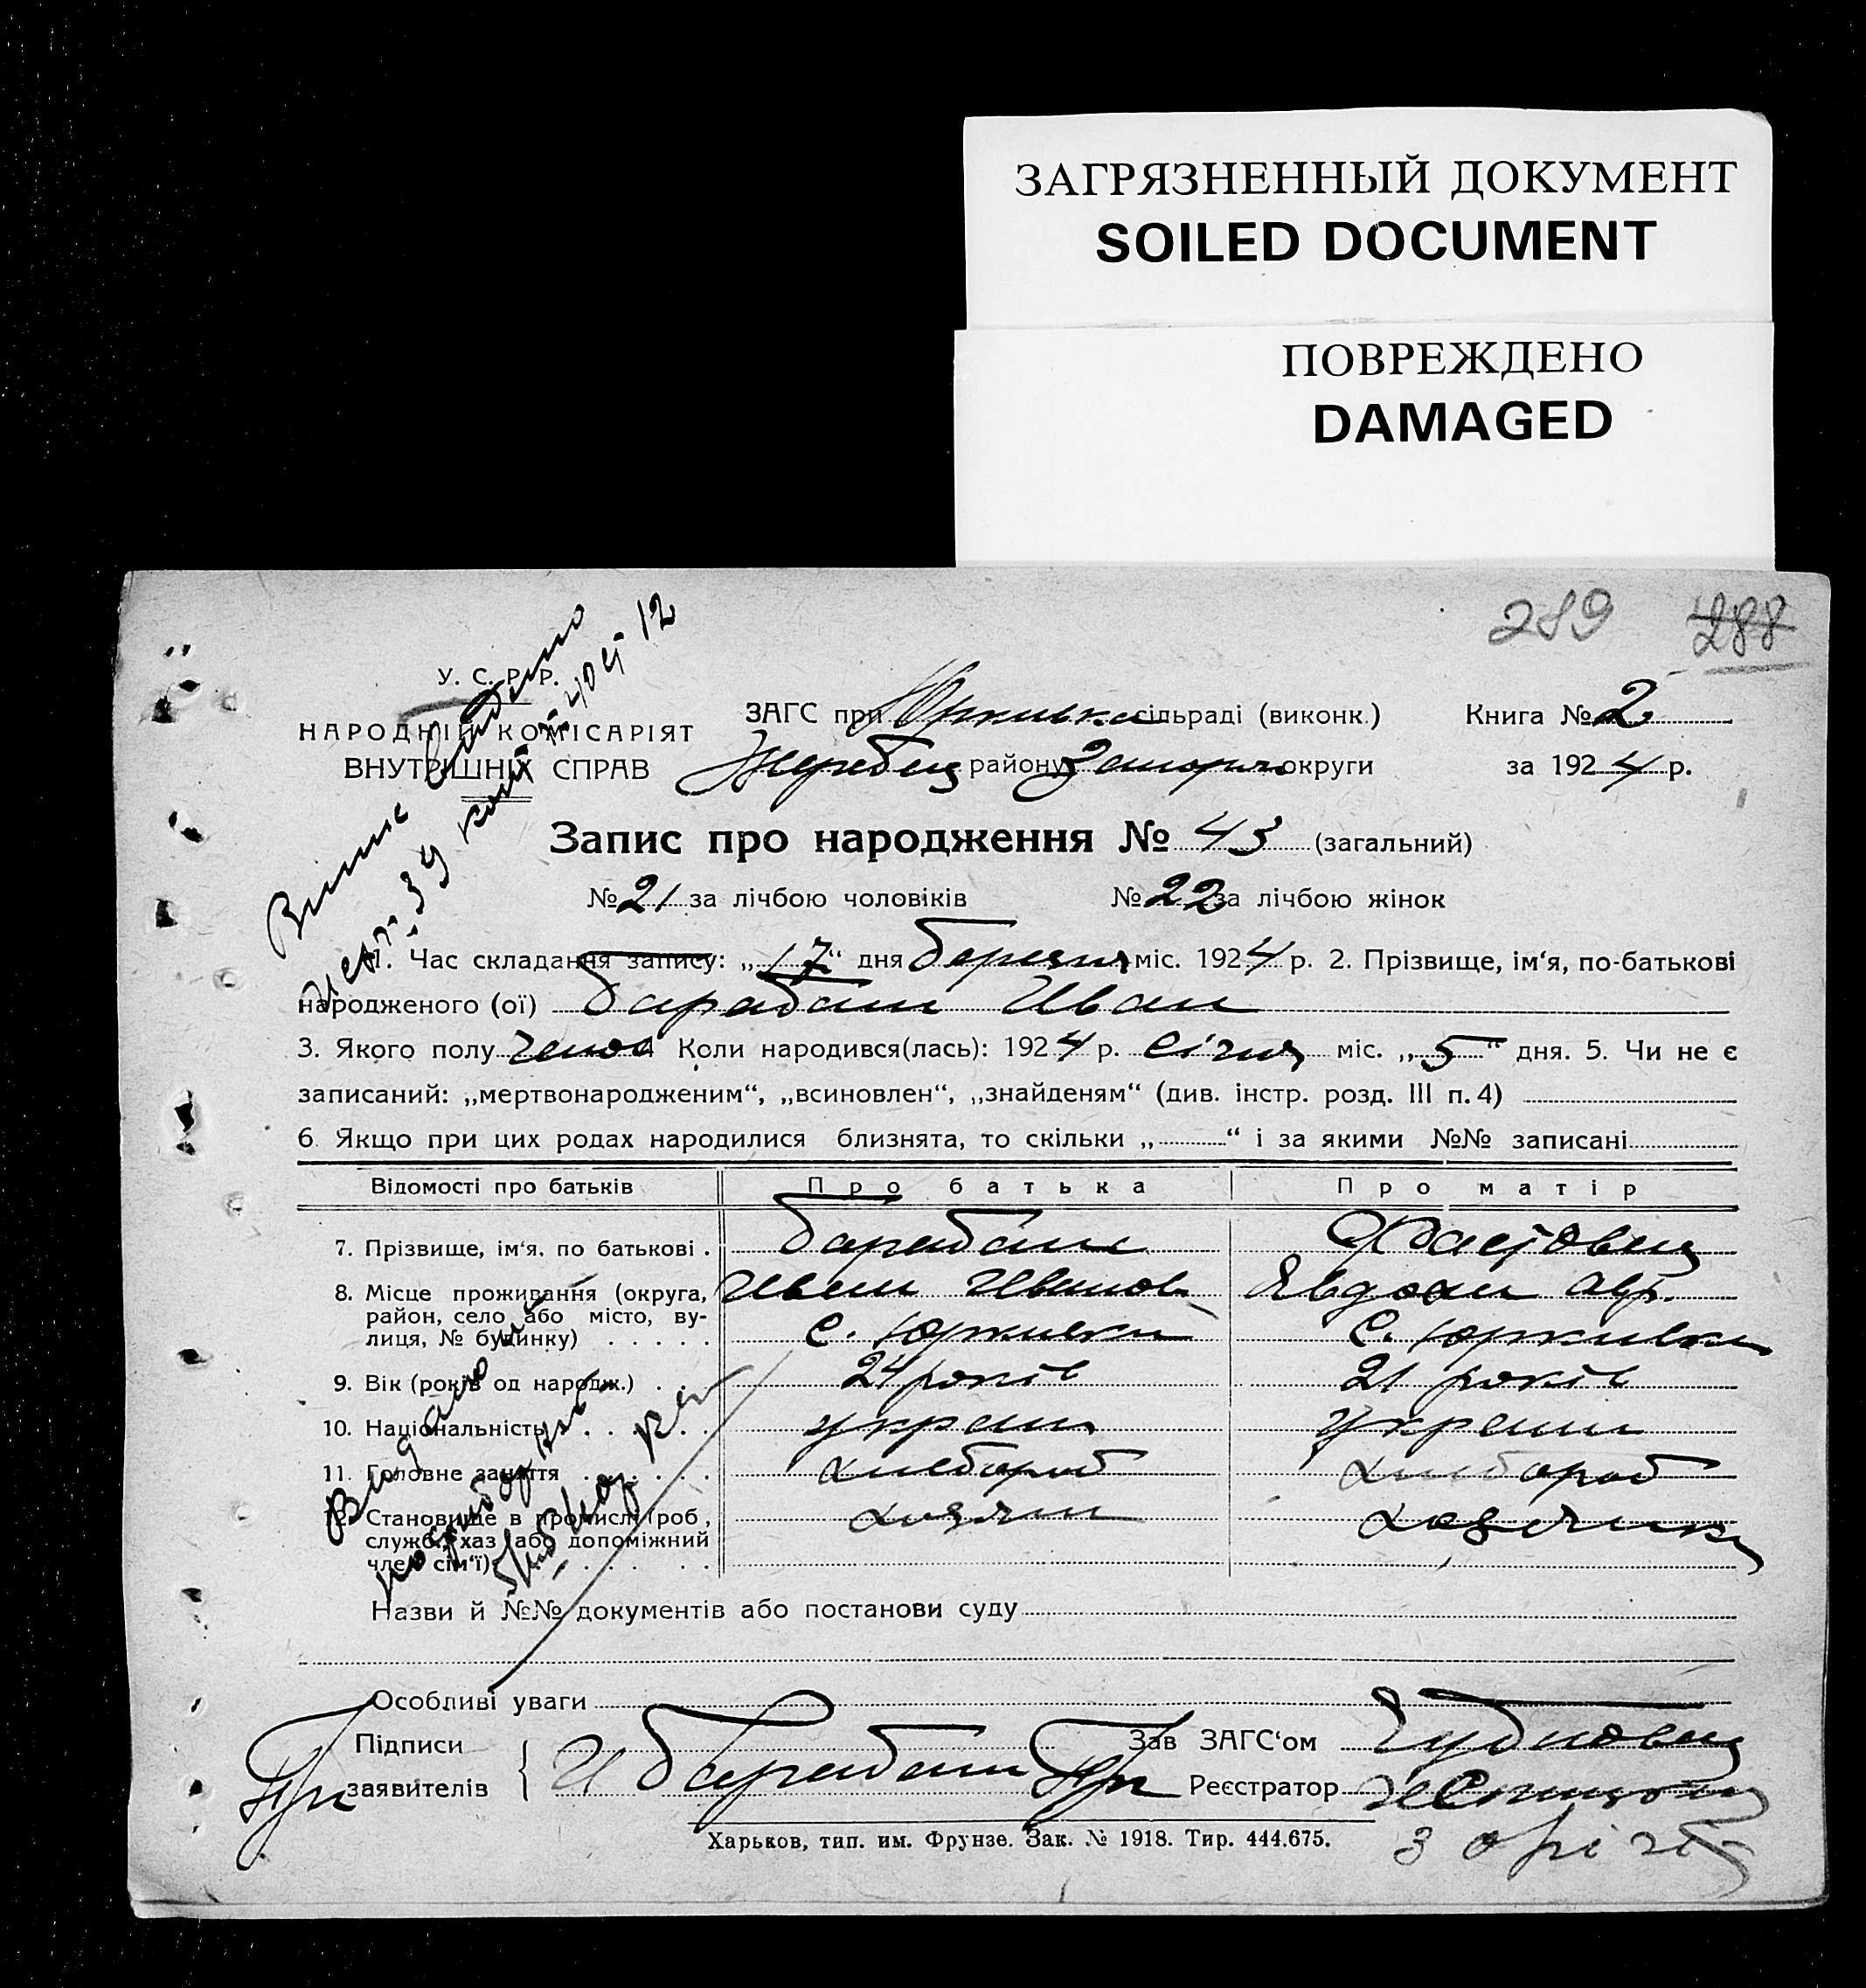 ЗАГРЯЗНЕННЫЙ ДОКУМЕНТ
SOILED DOCUMENT
ПОВРЕЖДЕНО
DAMAGED
289 288
У. С. Р. Р.
НАРОДНІЙ КОМІСАРІЯТ
ВНУТРІШНІХ СПРАВ
ЗАГС при Юркивка сільраді (виконк.) Книга № 2
Жеребец району Запориж округи за 1924 р.
Запис про народження № 43 (загальний)
№ 21 за лічбою чоловіків № 22 за лічбою жінок
1. Час складання запису: „17“ дня березня міс. 1924 р. 2. Прізвище, ім‘я, по-батькові
народженого (ої) Барабаш Иван
3. Якого полу 4 Коли народився(лась): 1924 р. Січня міс. „5“ дня. 5. Чи не є
записаний: „мертвонародженим“, „всиновлен“, „знайденям“ (див. інстр. розд. III п. 4)
6. Якщо при цих родах народилися близнята, то скільки „ “ і за якими №№ записані
Відомості про батьків Про батька Про матір
7. Прізвище, ім‘я, по батькові . Барабаш Фастовец
8. Місце проживання (округа, Иван Иванов. Явдоха
район, село або місто, ву-
лиця, № будинку) . . . . . с. Юркивка с. Юркивка
9. Вік (років од народж.) . . . 24 років 21 років
10. Національність . . . . . украин украин
11. Головне заняття . . . . . . хлебороб хлебороб
12. Становище в промислі (роб., хозяин хозяика
служб., хаз. або допоміжний
член сім‘ї) . . . . . .
Назви й №№ документів або постанови суду
Особливі уваги
Підписи Зав ЗАГС‘ом
заявителів И Барабаш Реєстратор
Харьков, тип. им. Фрунзе. Зак. № 1918. Тир. 444.675.